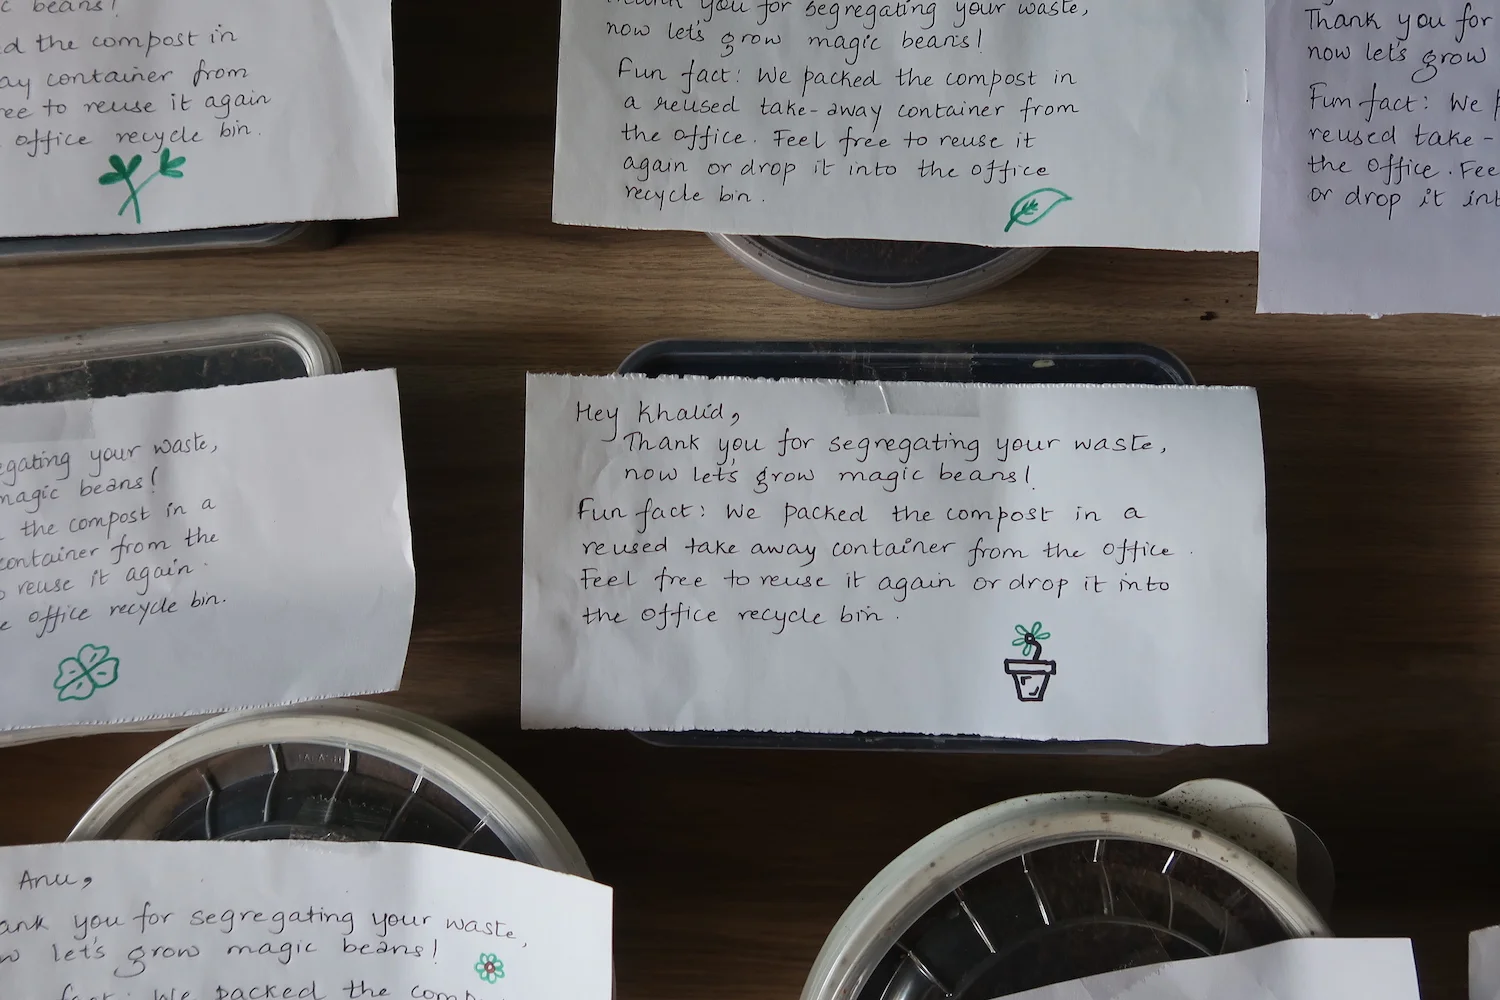 c beans!
d the compost in
ay container from
ree to reuse it again
office recycle bin.
Thank you for segregating your waste,
now let's grow magic beans!
Fun fact: We packed the compost in
a reused take-away container from
the office. Feel free to reuse it
again or drop it into the office
recycle bin.
Thank you for
now let's grow
Fun fact: We p
reused take-
the office. Fee
or drop it int
egating your waste,
magic beans!
the compost in a
container from the
o reuse it again.
e office recycle bin.
Hey Khalid,
Thank you for segregating your waste,
now let's grow magic beans!
Fun fact: We packed the compost in a
reused take away container from the office.
Feel free to reuse it again or drop it into
the office recycle bin.
Anu,
ank you for segregating your waste,
w let's grow magic beans!
fact: We packed the comp